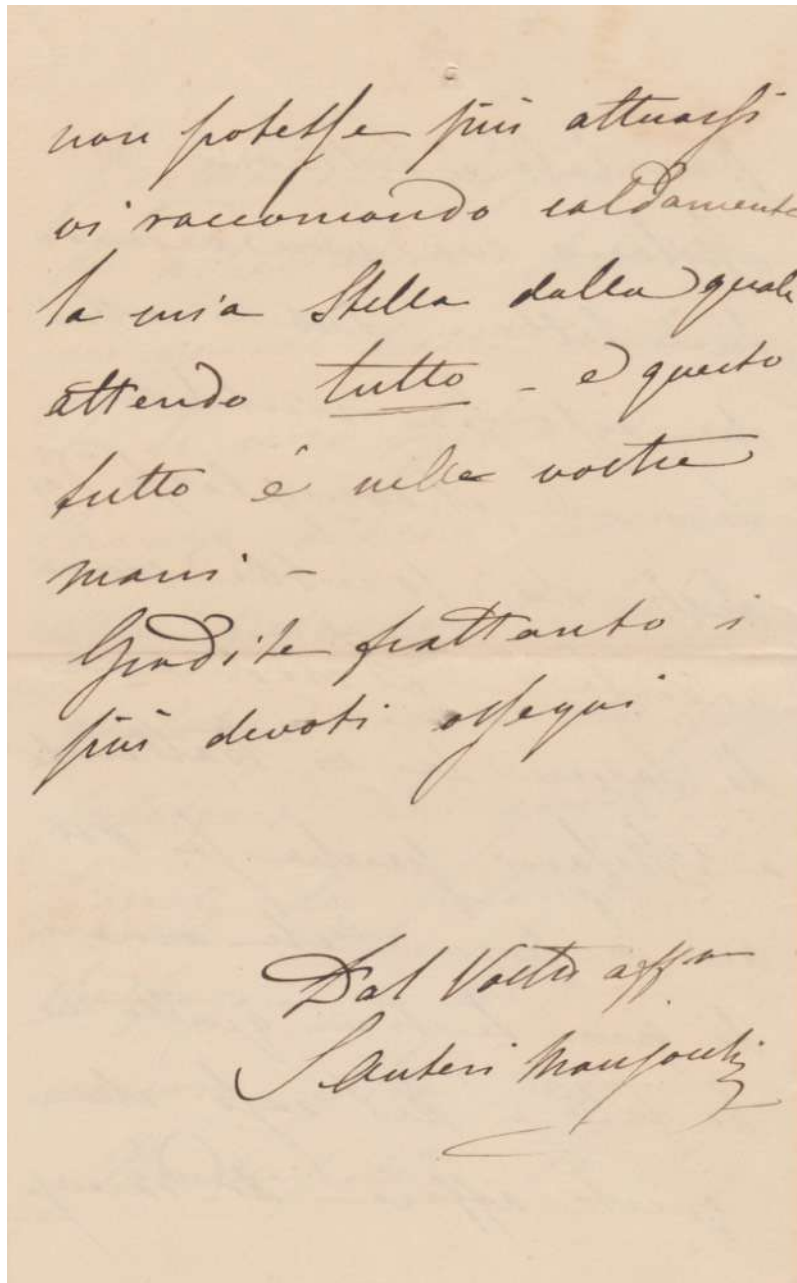 non potesse più attuarsi
vi raccomando caldamente
la mia Stella dalla quale
attendo tutto - e questo
tutto é nelle vostre
mani -
Gradite frattanto i
più devoti ossequi
Dal Vostro affmo
S Auteri Manzocchi